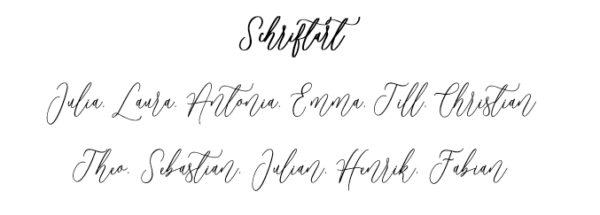 Schriftart
Julia, Laura, Antonia, Emma, Till, Christian
Theo, Sebastian, Julian, Henrik, Fabian